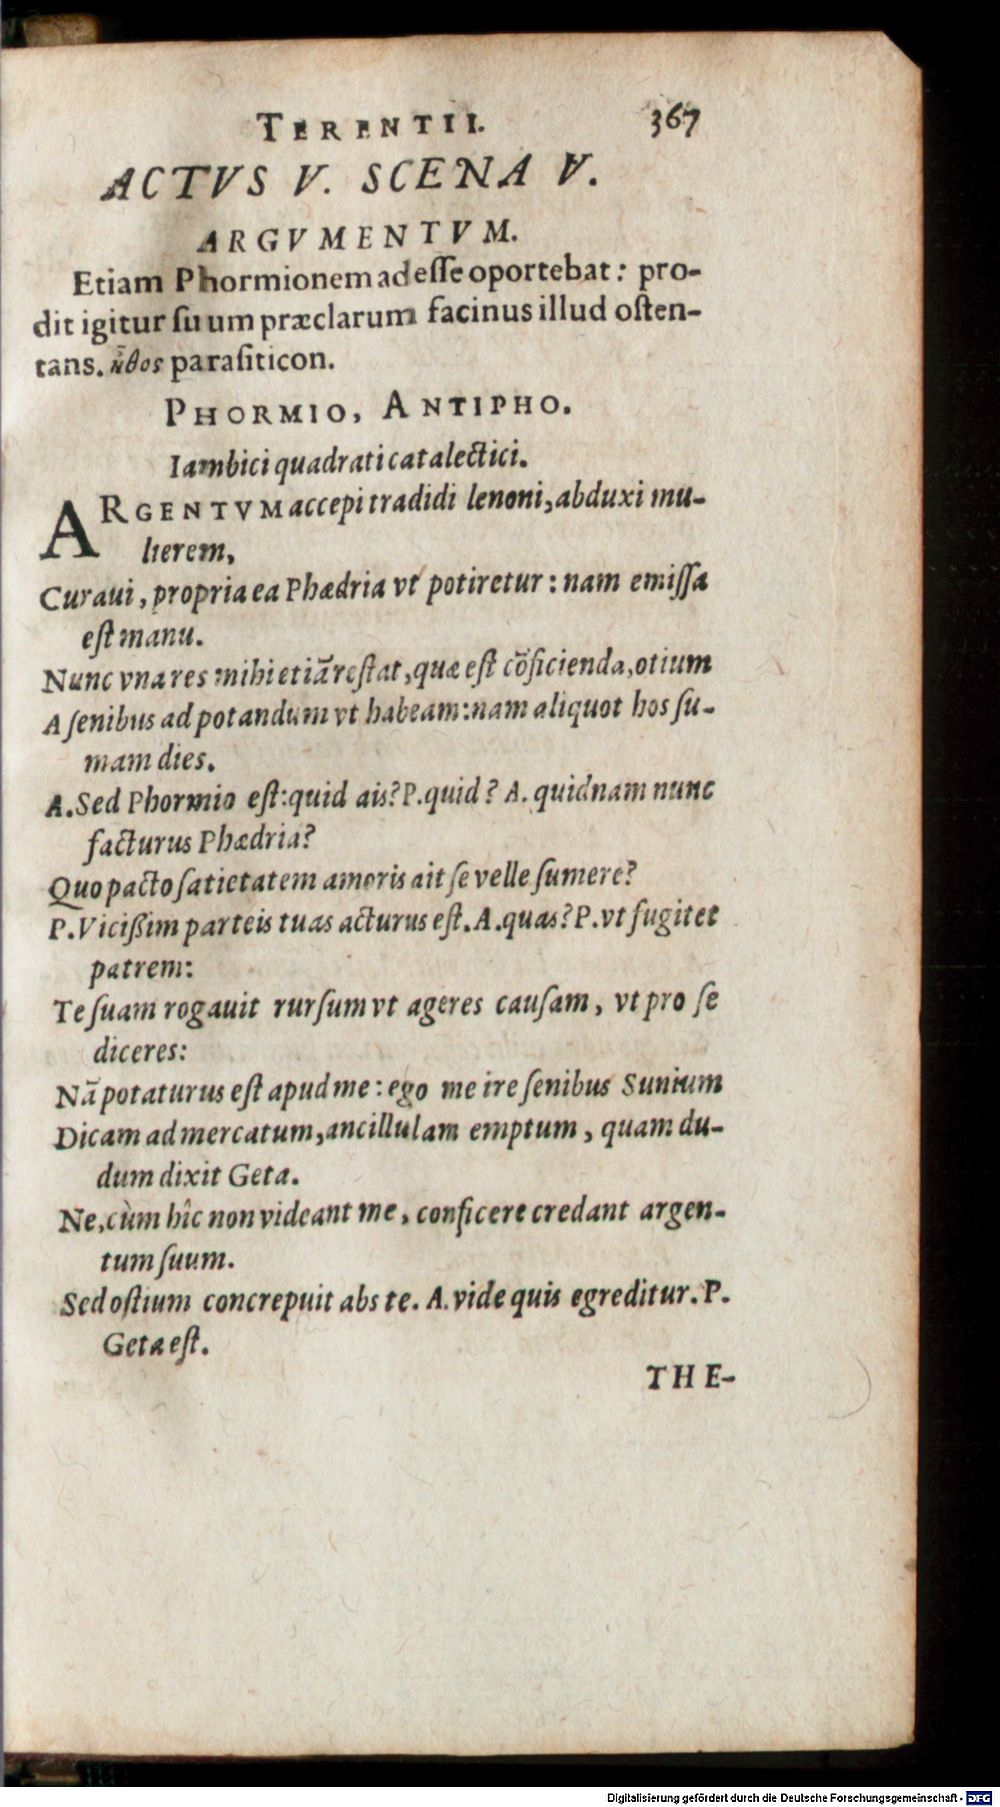 TERENTII. 367
ACTVS V. SCENA V.
ARGVMENTVM.
Etiam Phormionem adeſſe oportebat: pro-
dit igitur ſuum præclarum facinus illud oſten-
tans. ἦθος paraſiticon.
PHORMIO, ANTIPHO.
Iambici quadrati catalectici.
ARGENTVM accepi tradidi lenoni, abduxi mu-
lierem,
Curaui, propria ea Phædria vt potiretur: nam emiſſa
eſt manu.
Nunc vna res mihi etiā reſtat, quæ eſt cōficienda, otium
A ſenibus ad potandum vt habeam: nam aliquot hos ſu-
mam dies.
A. Sed Phormio eſt: quid ais? P. quid? A. quidnam nunc
facturus Phædria?
Quo pacto ſatietatem amoris ait ſe velle ſumere?
P. Viciſſim parteis tuas acturus eſt. A. quas? P. vt fugitet
patrem:
Te ſuam rogauit rurſum vt ageres cauſam, vt pro ſe
diceres:
Nā potaturus eſt apud me: ego me ire ſenibus Sunium
Dicam ad mercatum, ancillulam emptum, quam du-
dum dixit Geta.
Ne, cùm hîc non videant me, conficere credant argen-
tum ſuum.
Sed oſtium concrepuit abs te. A. vide quis egreditur. P.
Geta eſt.
THE-
Digitalisierung gefördert durch die Deutsche Forschungsgemeinschaft - DFG